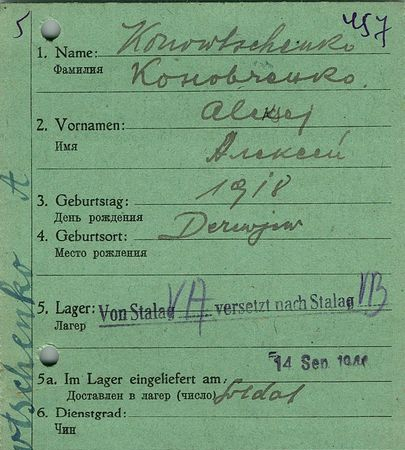 5 457
1. Name: Konowtschenko
Фамилия Коновченко.
2. Vornamen: Aleksej
Имя Алексей
3. Geburtstag: 1918
День рождения
4. Geburtsort: Derewjew
Место рождения
5. Lager: Von Stalag VA versetzt nach Stalag VB
Лагерь
14 Sep.
5a. Im Lager eingeliefert am
Доставлен в лагерь (число) Soldat
6. Dienstgrad:
Чин
wtschenko A